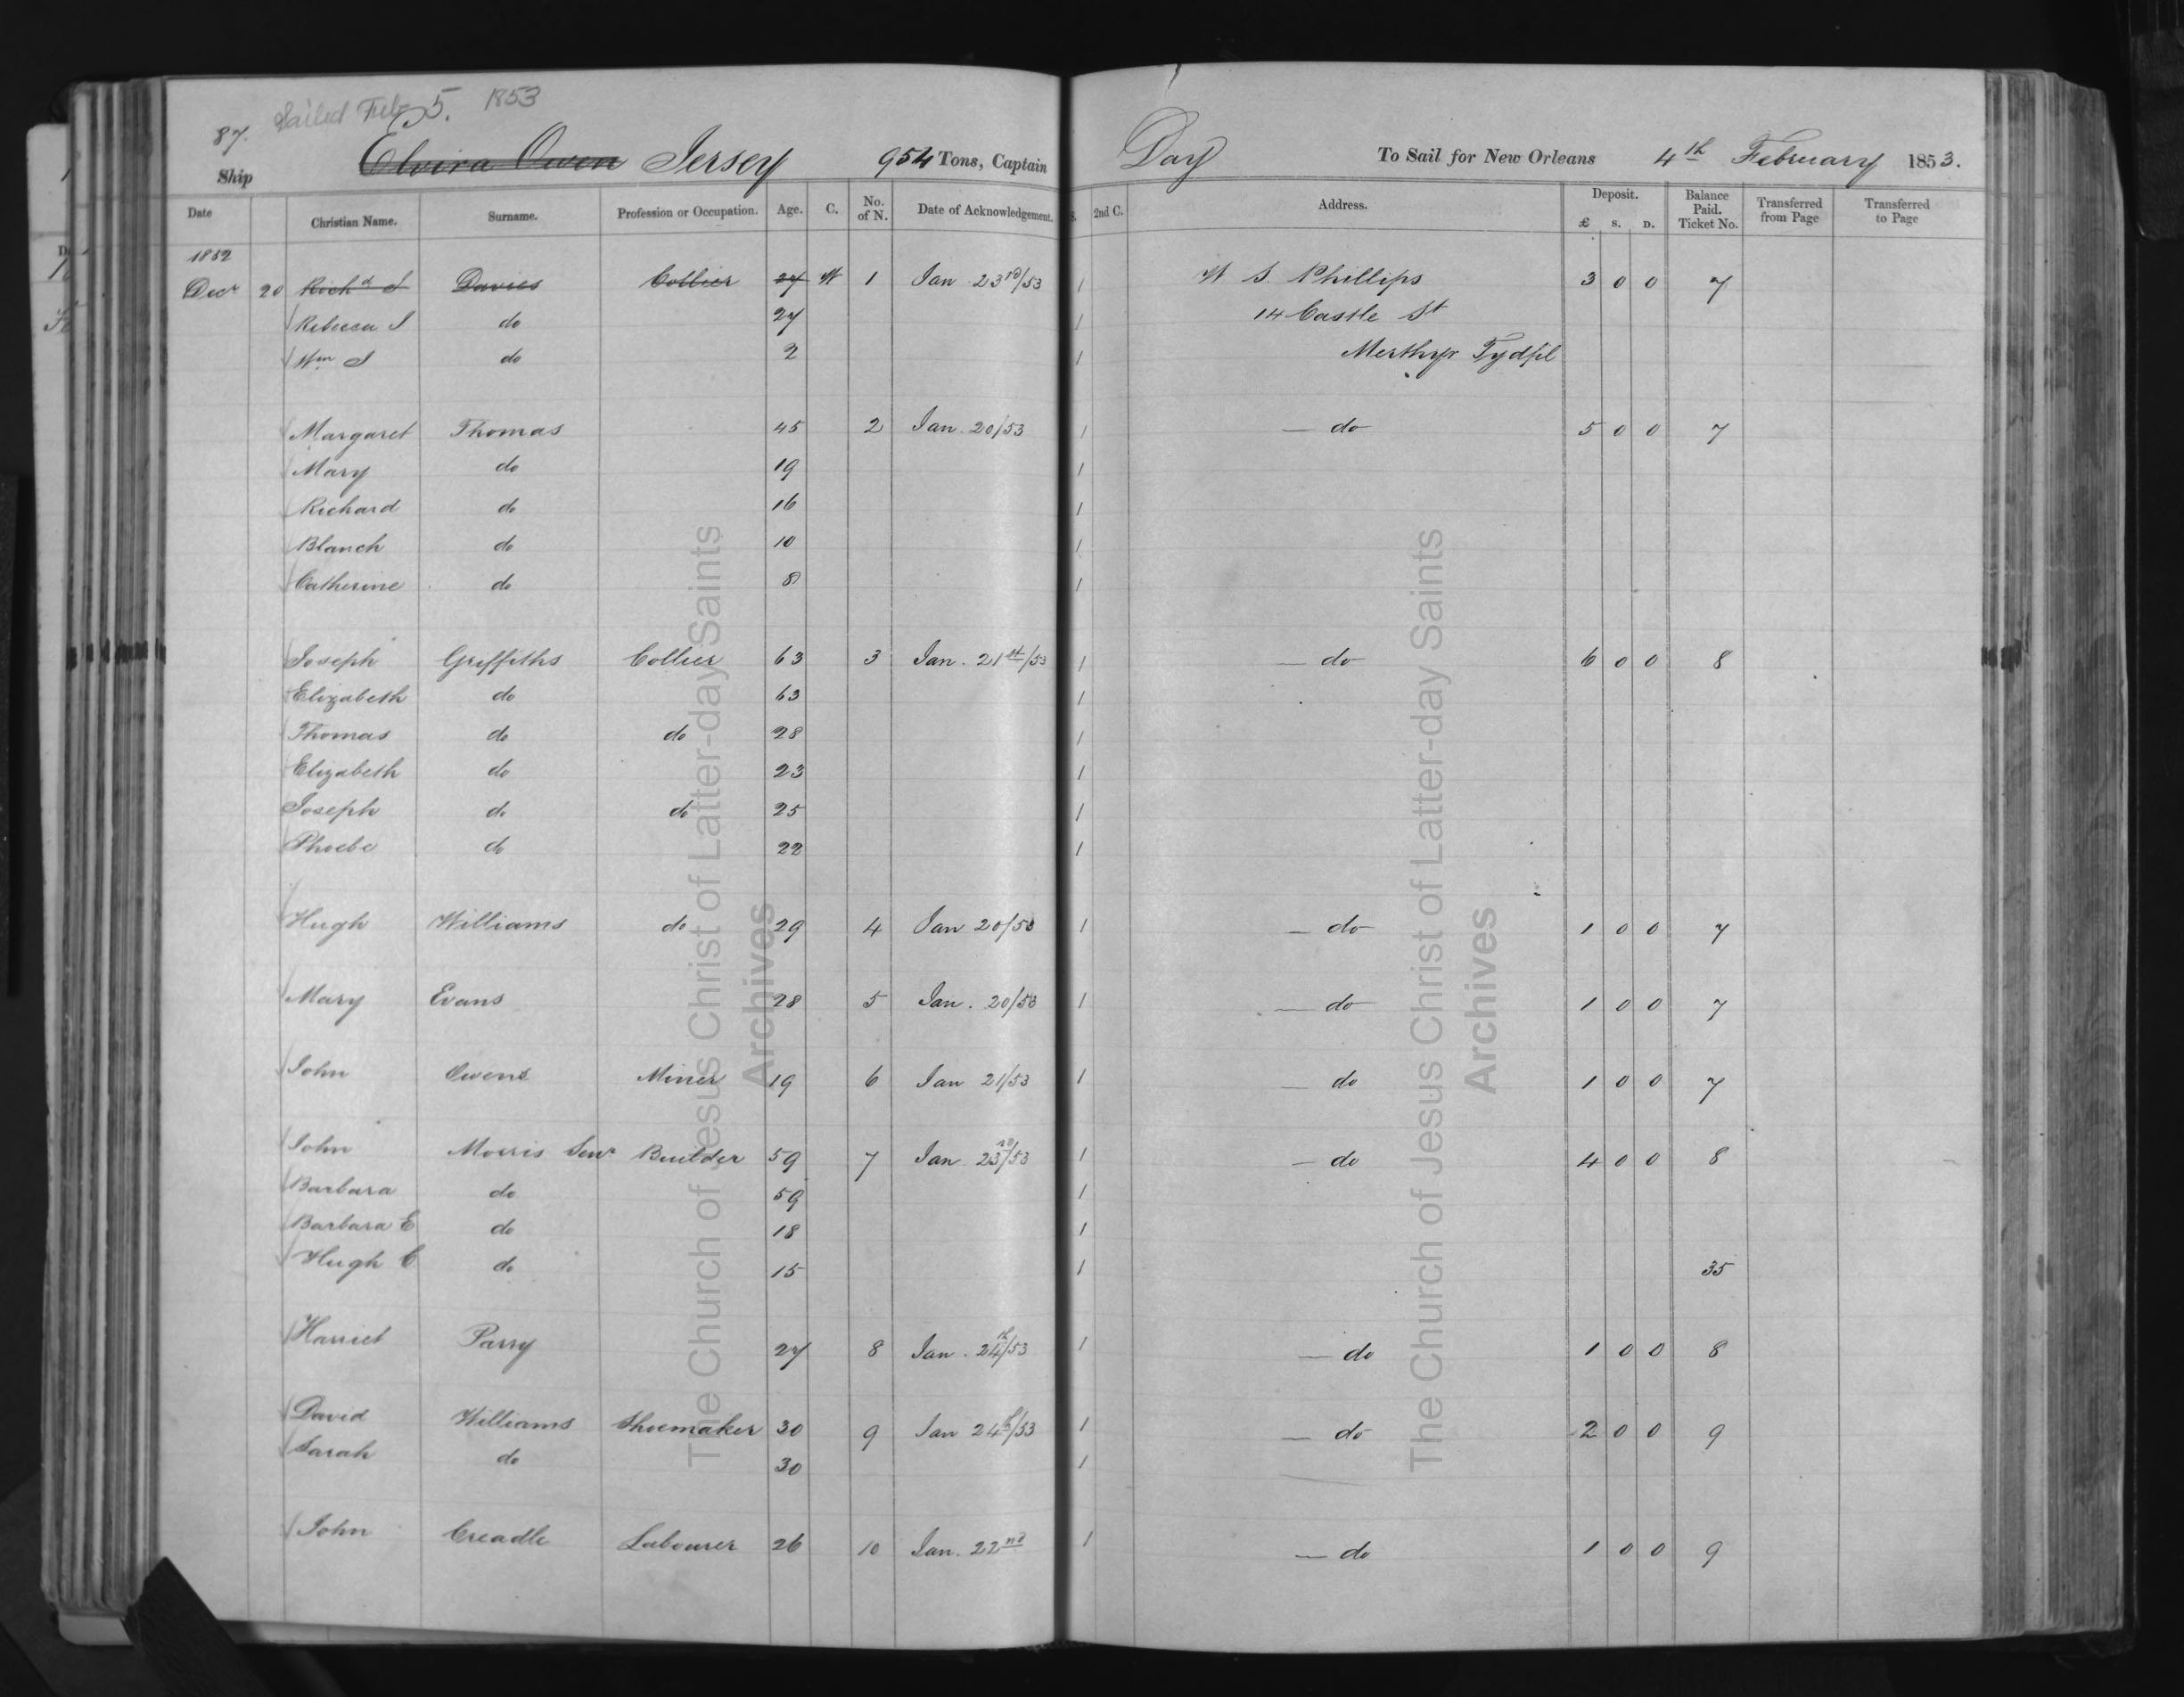 Sailed Feb 5. 1853
87.
Ship Elvira Owen Jersey 954 Tons, Captain Day To Sail for New Orleans 4th February 1853.
Date Christian Name. Surname. Profession or Occupation. Age. C. No. of N. Date of Acknowledgement. S. 2nd C. Address. Deposit. £ S. D. Balance Paid. Ticket No. Transferred from Page Transferred to Page
1852
Decr 20 Richd J Davies Collier 27 W 1 Jan 23rd/53 1 W S Phillips 3 0 0 7
Rebecca J do 27 1 14 Castle St
Wm J do 2 1 Merthyr Tydfil
Margaret Thomas 45 2 Jan 20/53 1 — do 5 0 0 7
Mary do 19 1
Richard do 16 1
Blanch do 10 1
Catherine do 8 1
Joseph Griffiths Collier 63 3 Jan. 21st/53 1 — do 6 0 0 8
Elizabeth do 63 1
Thomas do do 28 1
Elizabeth do 23 1
Joseph do do 25 1
Phoebe do 22 1
Hugh Williams do 29 4 Jan 20/53 1 — do 1 0 0 7
Mary Evans 28 5 Jan. 20/53 1 — do 1 0 0 7
John Owens Miner 19 6 Jan 21/53 1 — do 1 0 0 7
John Morris Senr Builder 59 7 Jan 23rd/53 1 — do 4 0 0 8
Barbara do 59 1
Barbara E do 18 1
Hugh C do 15 1 35
Harriet Parry 27 8 Jan. 24th/53 1 — do 1 0 0 8
David Williams Shoemaker 30 9 Jan 24th/53 1 — do 2 0 0 9
Sarah do 30 1
John Creadle Labourer 26 10 Jan. 22nd 1 — do 1 0 0 9
The Church of Jesus Christ of Latter-day Saints
Archives
The Church of Jesus Christ of Latter-day Saints
Archives